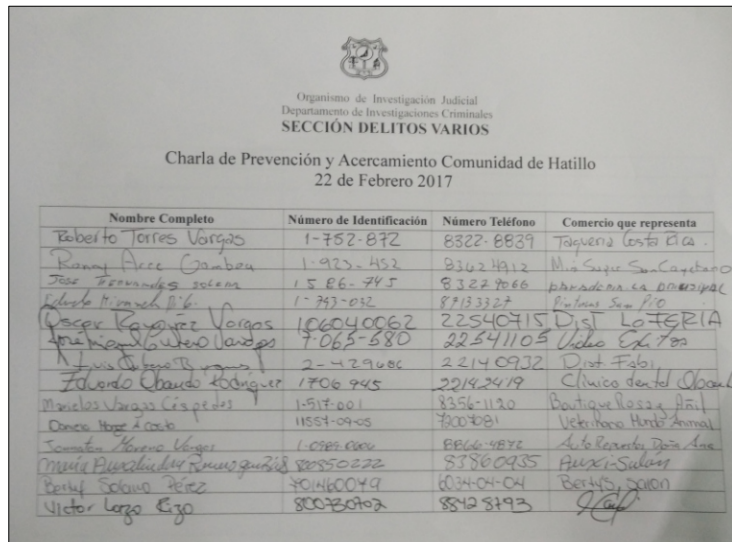 Organismo de Investigación Judicial
Departamento de Investigaciones Criminales
SECCIÓN DELITOS VARIOS
Charla de Prevención y Acercamiento Comunidad de Hatillo
22 de Febrero 2017
Nombre Completo Número de Identificación Número Teléfono Comercio que representa
Roberto Torres Vargas 1-752-872 8322-8839 Taqueria Costa Rica.
Arce Gamboa 1-923-452 83624912 Mini Super San Cayetano
Jose Fernandez 1586-745 83229066 panaderia la principal
1-793-032 89133327 Pinturas San Pio
Oscar Vargas 106040062 22540715 Dist LOTERIA
7-065-580 22541105 Video Exitos
Luis 2-429606 22140932 Dist. Fabi
Eduardo Obando Rodriguez 1706 945 22142419 Clinica dental
Marielos Vargas Céspedes 1-517-001 8356-1120 Boutique Rossy Añil
11557-09-05 72007081 Veterinaria Mundo Animal
Moreno Vargas 8866-4872 Auto Doña Ana
Maria 83860935
Solano Pérez 701460049 6034-04-04 Bertys, salon
Victor Rizo 800730702 8842 8793